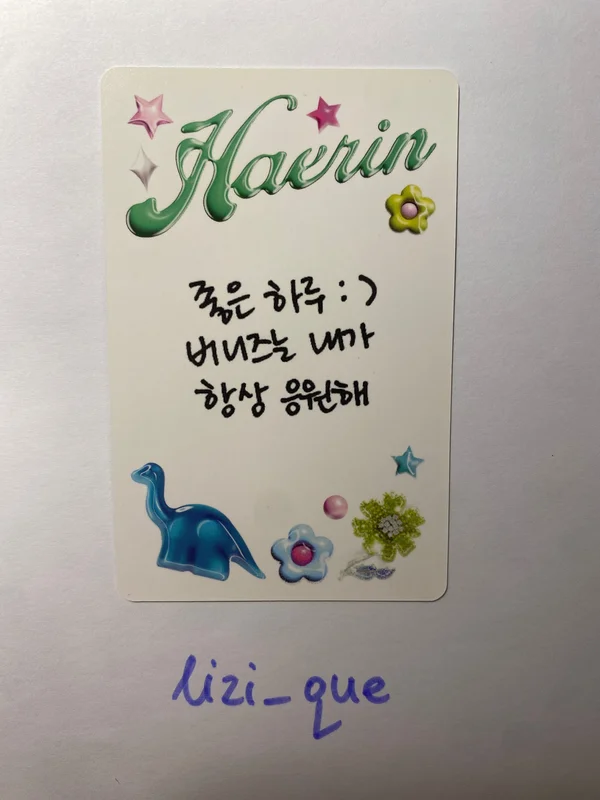 Haerin
좋은 하루 : )
버니즈는 내가
항상 응원해
lizi_que